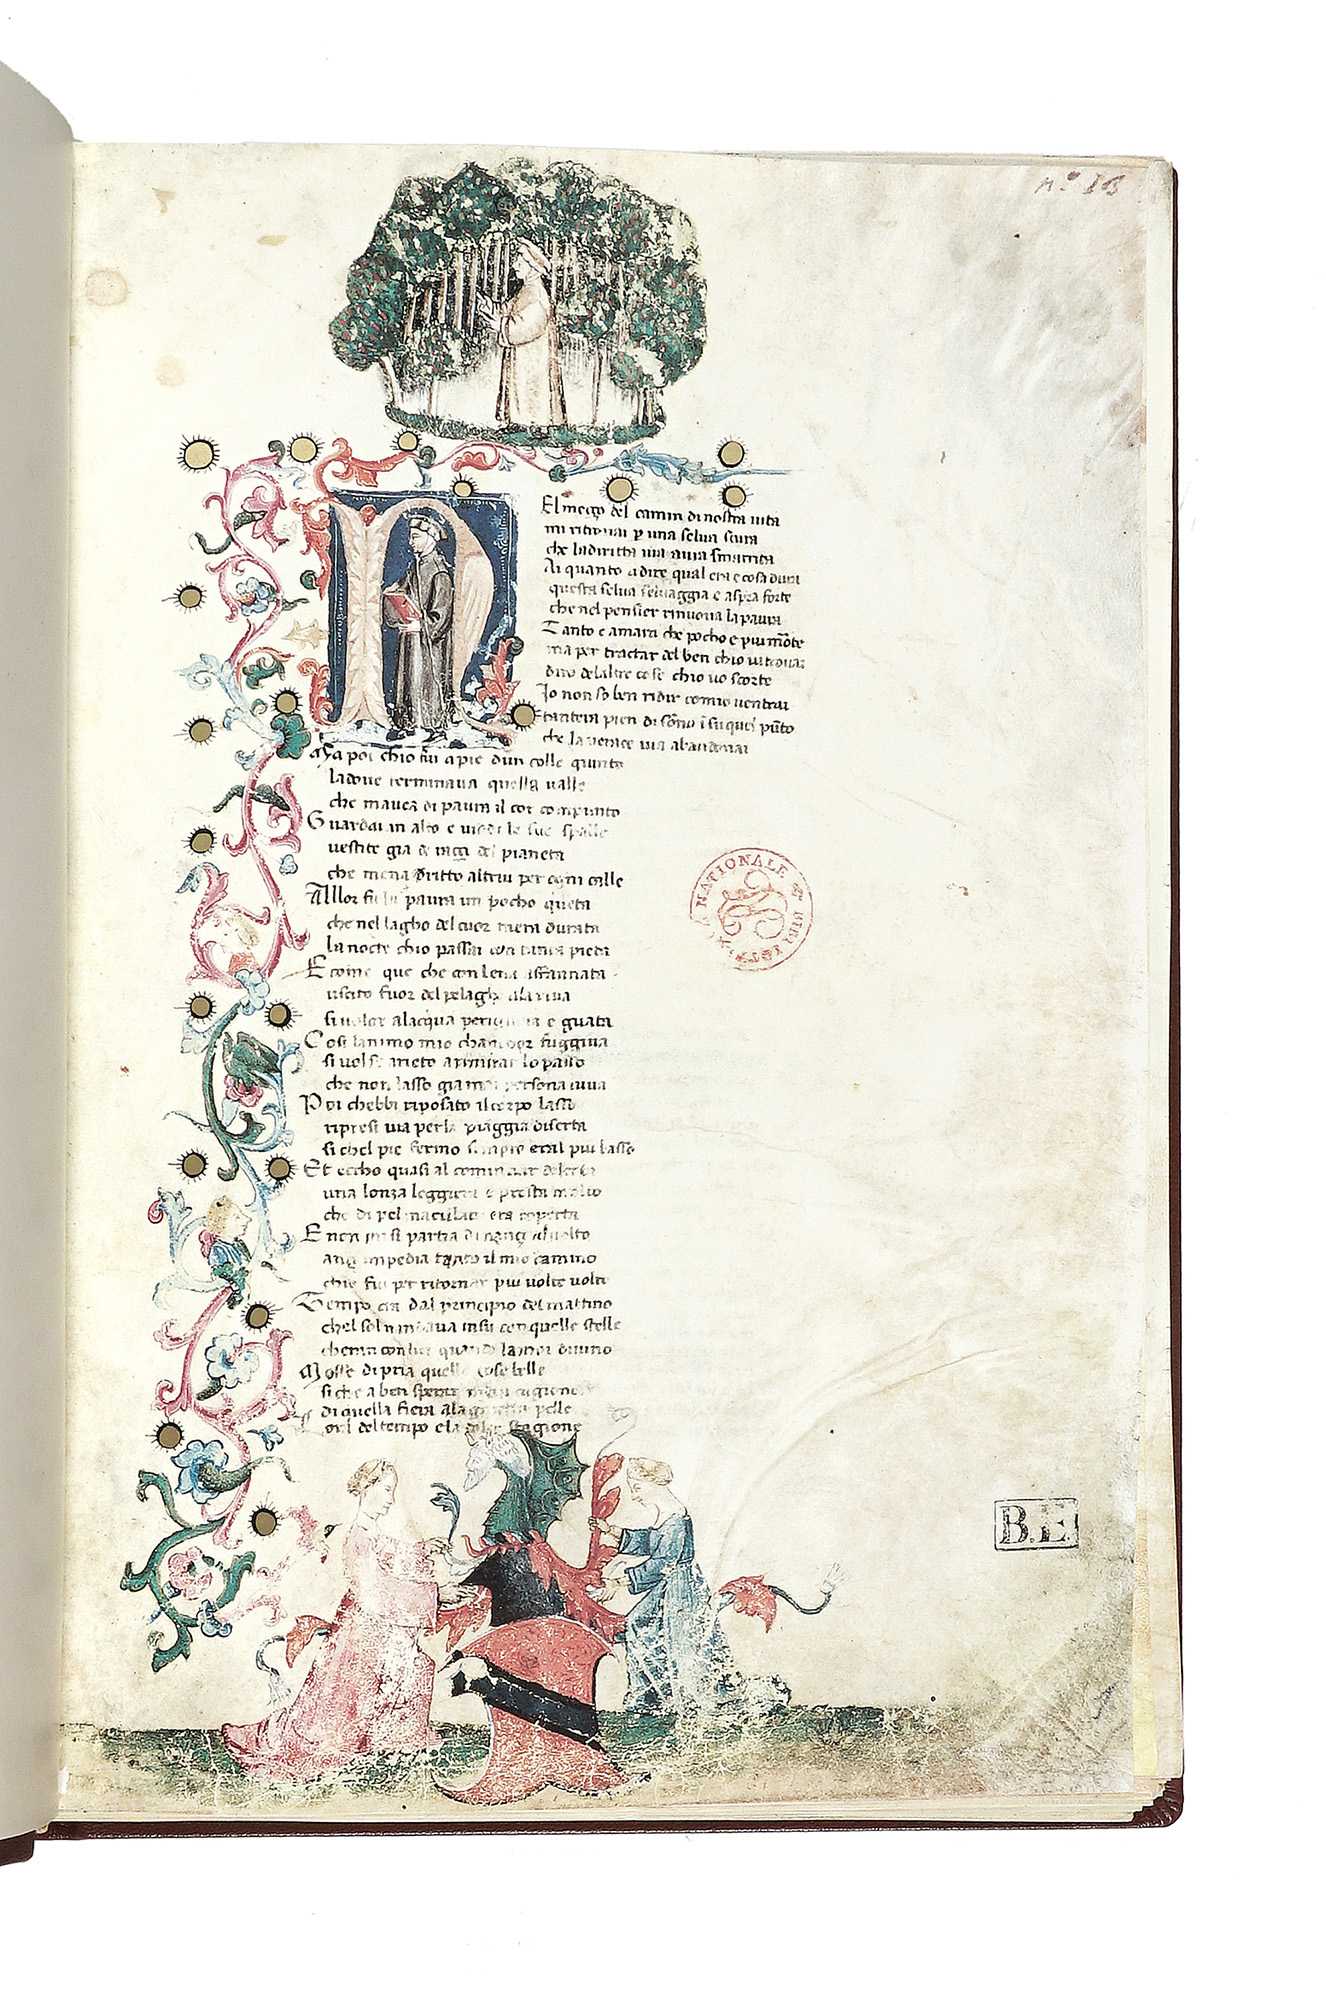 nº 13
N
El meço del camin di nostra uita
mi ritrouai p una selua scura
che ladiritta uia auia smarrita
Ai quanto adire qual era e cosa dura
questa selua seluaggia e aspra forte
che nel pensier rinuoua la paura
Tanto e amara che pocho e piu morte
ma per tractar del ben chio ui trouai
diro delaltre cose chio uo scorte
Io non so ben ridir comio uentrai
tantera pien di sono i su quel puto
che la uerace uia abandonai
Ma poi chio fui apie dun colle giunto
ladoue terminaua quella ualle
che mauea di paura il cor compunto
Guardai in alto e uiddi le sue spalle
uestite gia de raggi del pianeta
che mena dritto altrui per ogni calle
Allor fu la paura un pocho queta
che nel lagho del cuor mera durata
la nocte chio passai con tanta pieta
E come que che con lena affannata
uscito fuor del pelagho ala riua
si uolge alacqua perigliosa e guata
Cosi lanimo mio chancor fuggiua
si uolse arieto arimirar lo passo
che non lasso gia mai persona uiua
Poi chebbi riposato il corpo lasso
ripresi uia per la piaggia diserta
si chel pie fermo sempre eral piu basso
Et eccho quasi al cominciar delerta
una lonza leggiera e presta molto
che di pel maculato era coperta
E non mi si partia dinançi aluolto
anç impedia tanto il mio camino
chio fui per ritornar piu uolte uolto
Tempo era dal principio del mattino
chel sol montaua insu con quelle stelle
cheran con lui quando lamor diuino
Mosse di pria quelle cose belle
si che a ben sperar mera cagione
di quella fiera ala gaietta pelle
ora del tempo e la dolce stagione
NATIONALE
B.E.